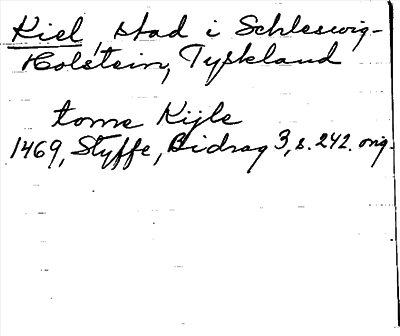 Kiel, stad i Schleswig-
Holstein, Tyskland
tome Kijle
1469, Styffe, Bidrag 3, s. 242. orig.